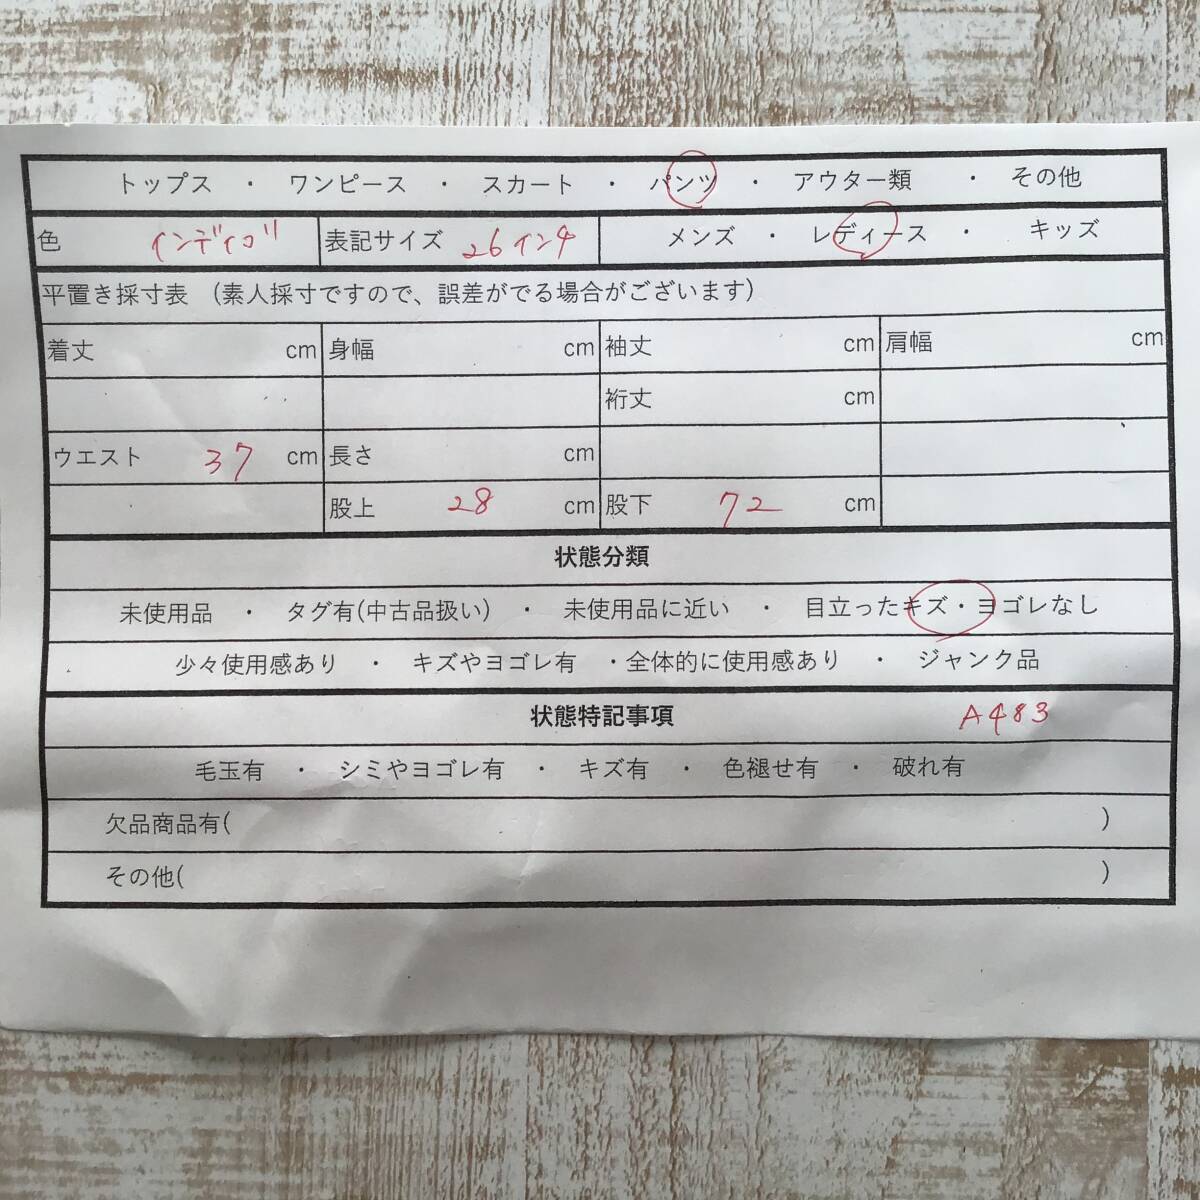 トップス ・ ワンピース ・ スカート ・ パンツ ・ アウター類 ・ その他
色 インディゴ 表記サイズ 26インチ メンズ ・ レディース ・ キッズ
平置き採寸表 （素人採寸ですので、誤差がでる場合がございます）
着丈 cm 身幅 cm 袖丈 cm 肩幅 cm
裄丈 cm
ウエスト 37 cm 長さ cm
股上 28 cm 股下 72 cm
状態分類
未使用品 ・ タグ有(中古品扱い) ・ 未使用品に近い ・ 目立ったキズ・ヨゴレなし
少々使用感あり ・ キズやヨゴレ有 ・全体的に使用感あり ・ ジャンク品
状態特記事項 A483
毛玉有 ・ シミやヨゴレ有 ・ キズ有 ・ 色褪せ有 ・ 破れ有
欠品商品有( )
その他( )